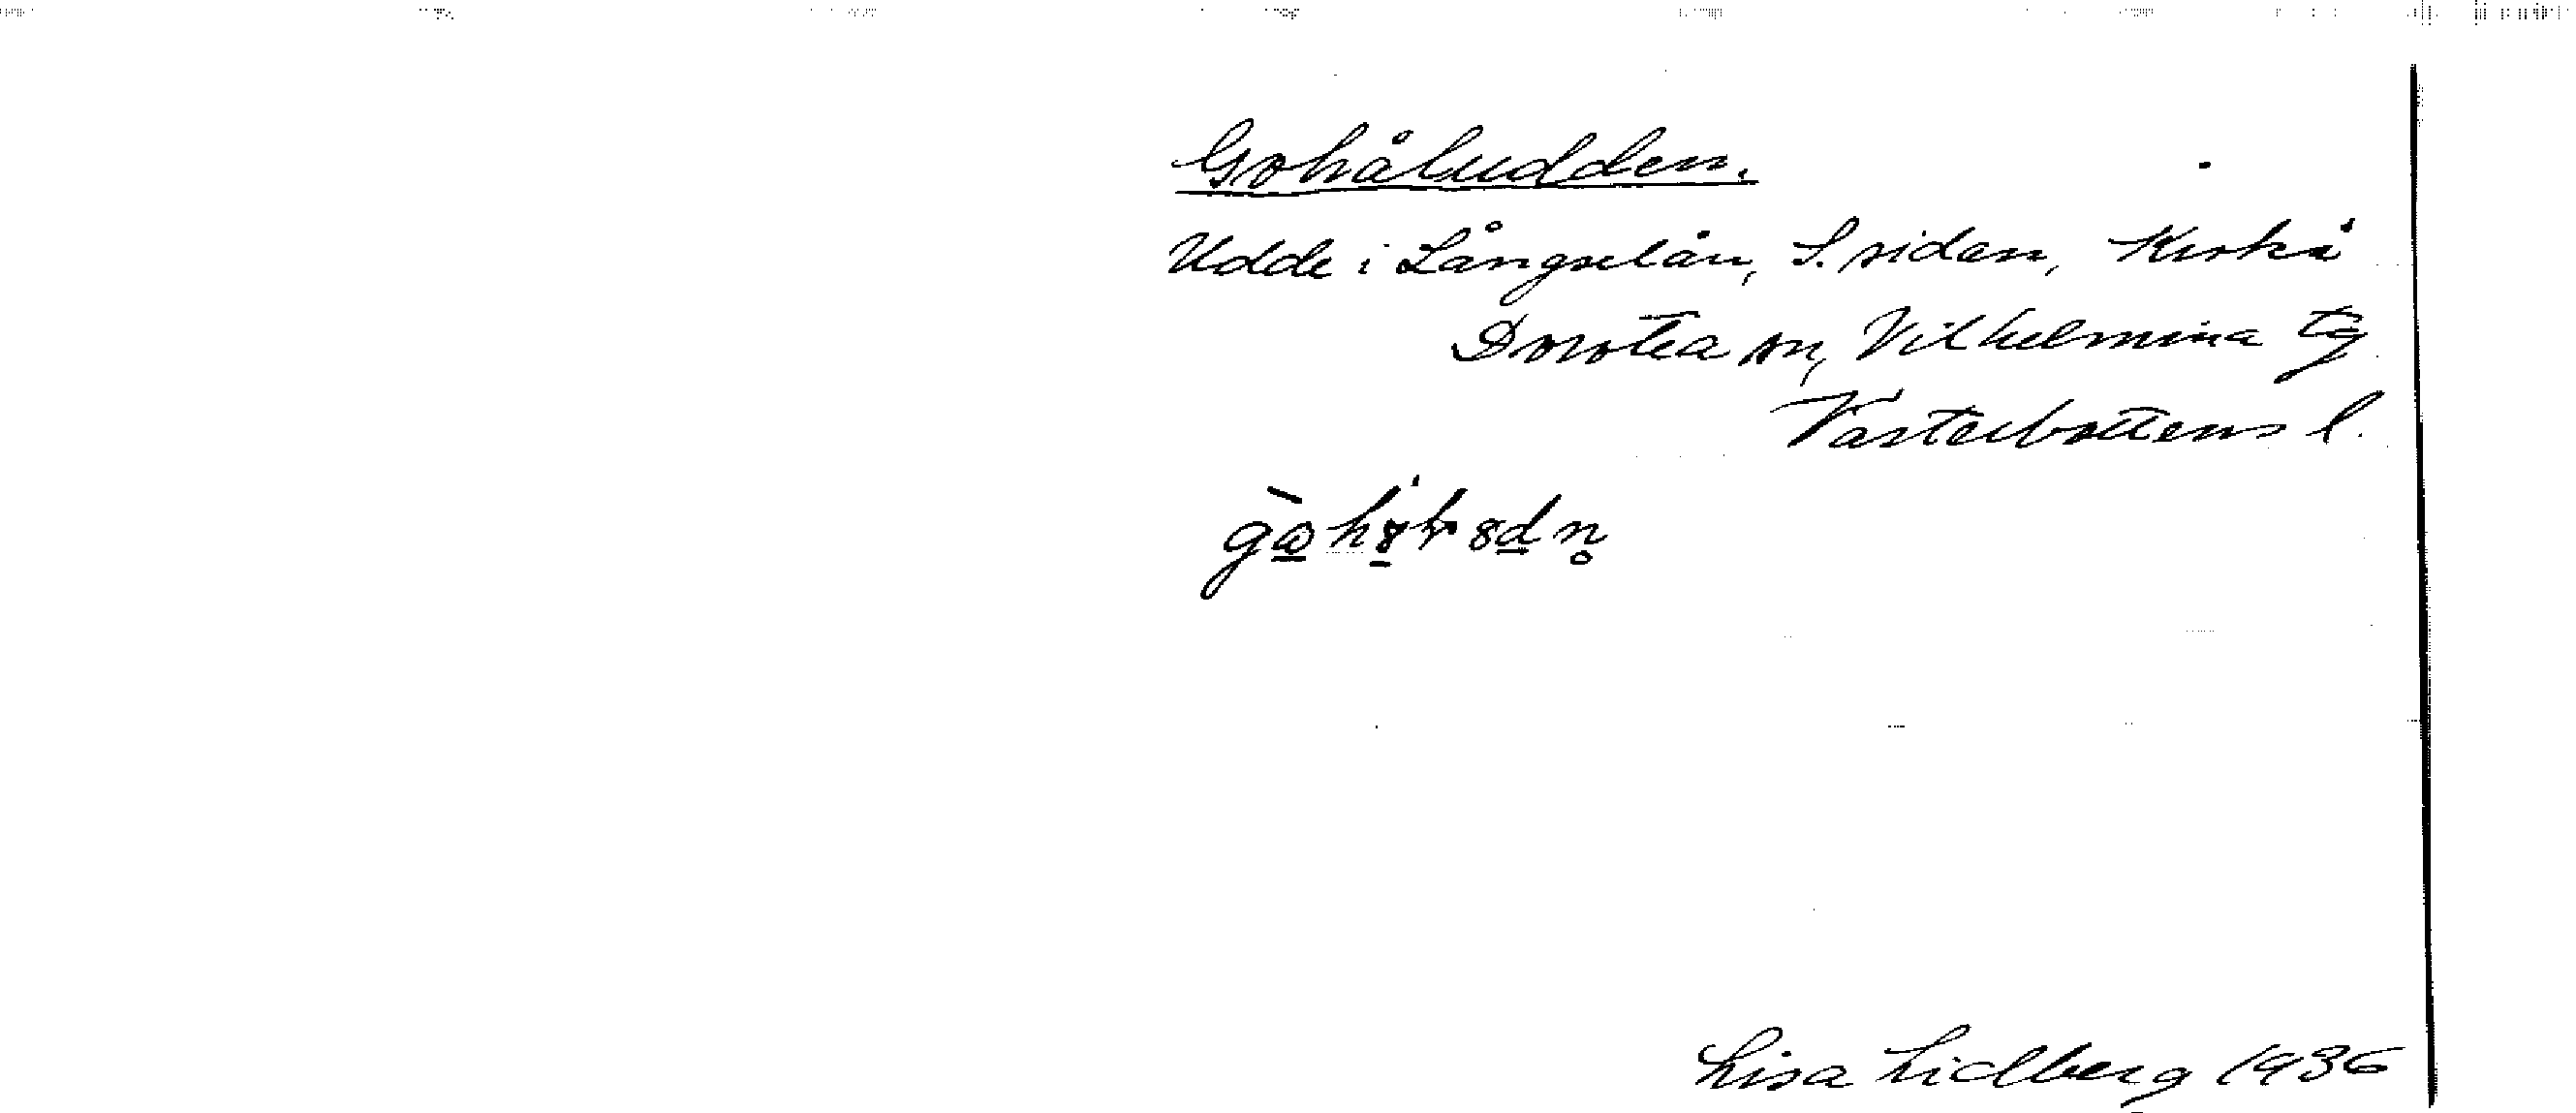 Gohåludden.
Udde i Långselån, S. sidan, Kirkå
Dorotea sn, Vilhelmina tg
Västerbottens l.
Lisa Lidberg 1936